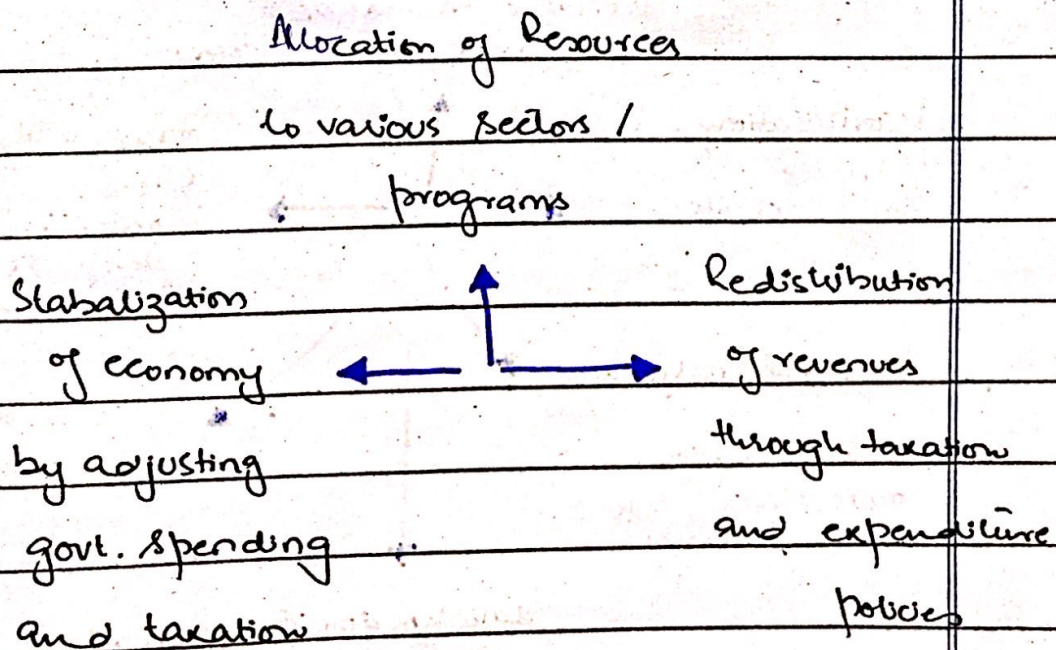 Allocation of Resources
to various sectors /
programs
Stabalization
of economy
by adjusting
govt. spending
and taxation
Redistribution
of revenues
through taxation
and expenditure
policies